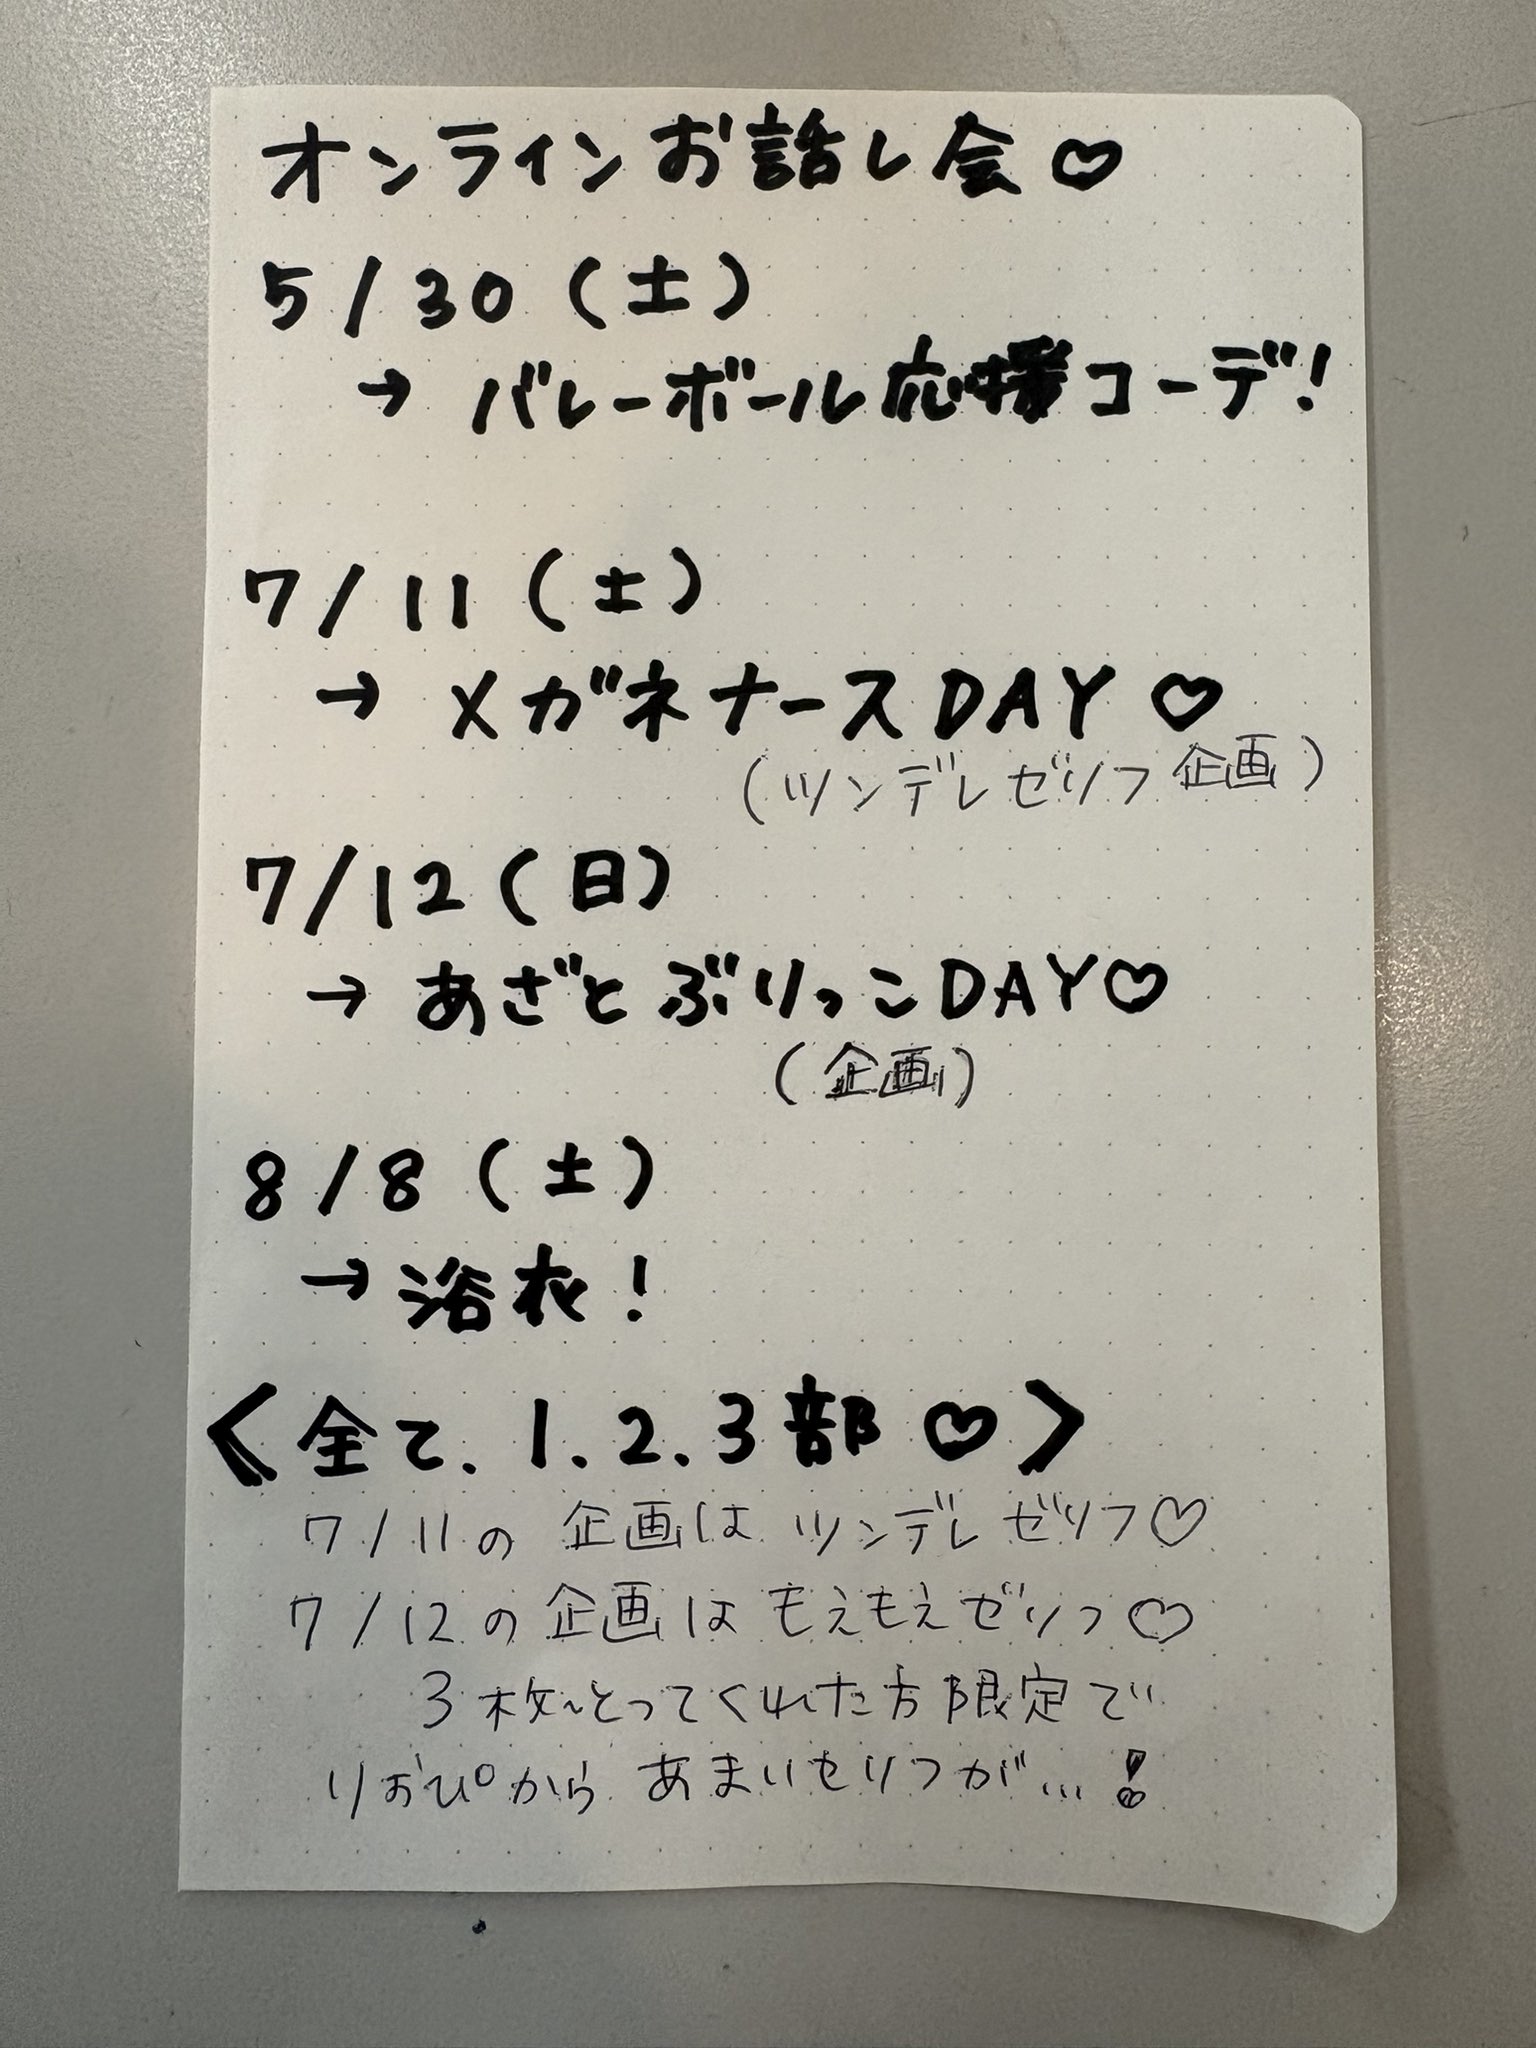 オンラインお話し会♡
5/30(土)
→ バレーボール応援コーデ!
7/11(土)
→ メガネナースDAY♡
(ツンデレゼリフ企画)
7/12(日)
→ あざとぶりっこDAY♡
(企画)
8/8(土)
→ 浴衣!
<全て、1.2.3部♡>
7/11の企画はツンデレゼリフ♡
7/12の企画はもえもえゼリフ♡
3枚〜とってくれた方限定で
りおぴからあまいセリフが…!